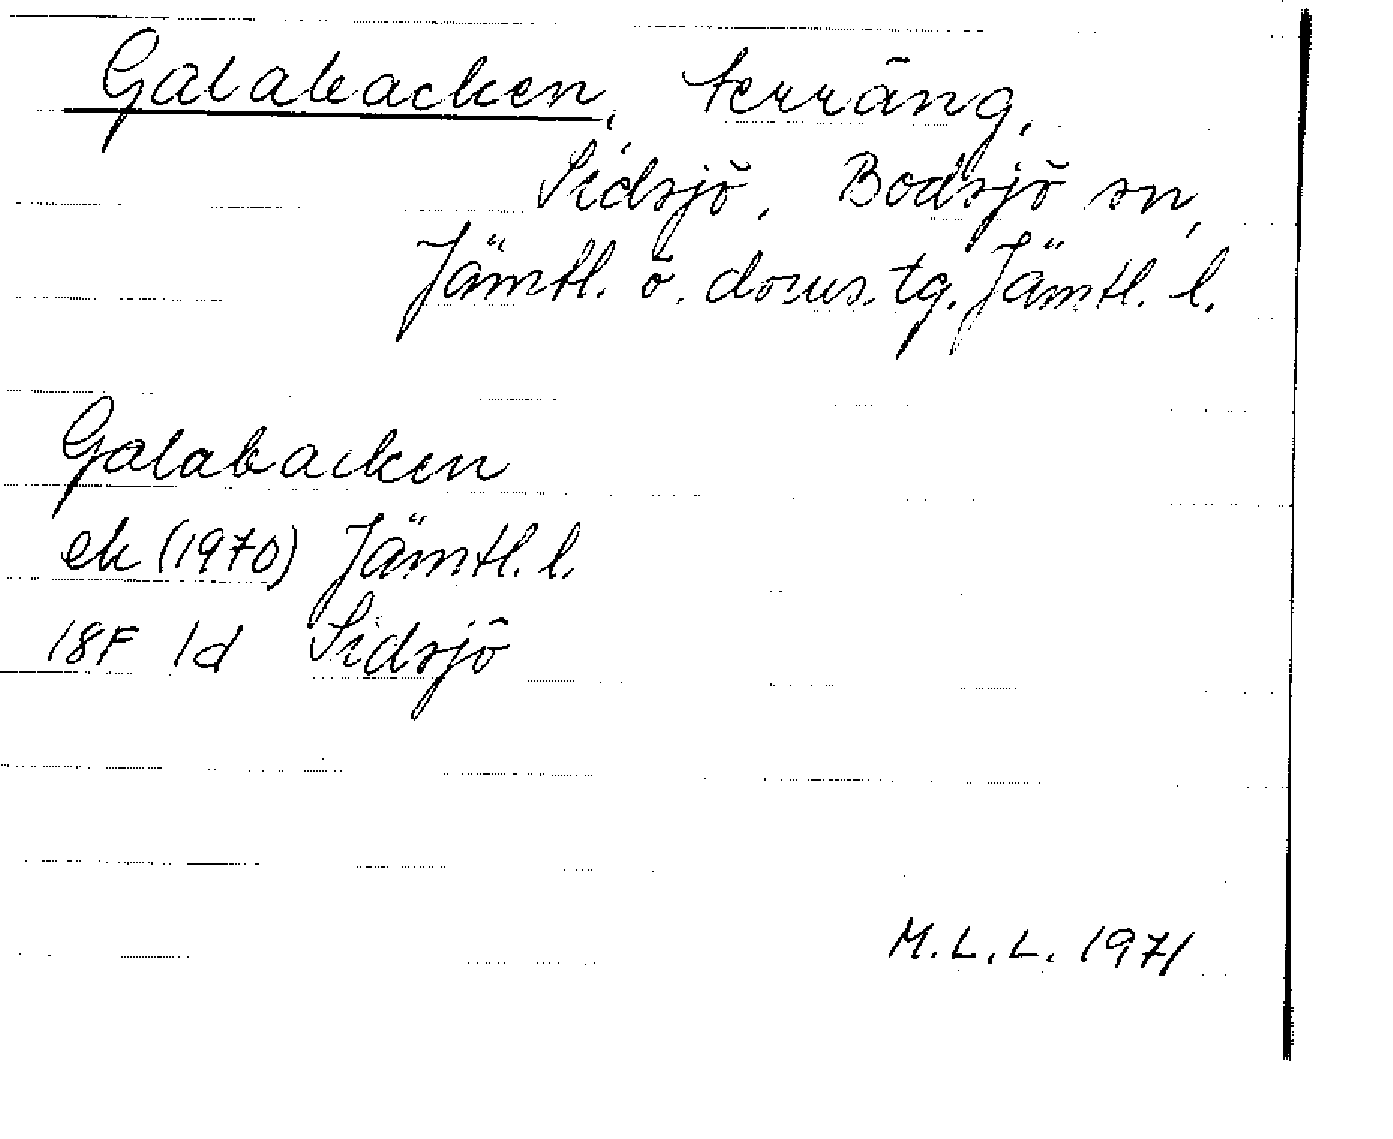 Galabacken, terräng,
Sidsjö, Bodsjö sn,
Jämtl. ö. doms. tg. Jämtl. l.
Galabacken
ek (1970) Jämtl. l.
18F 1d Sidsjö
M.L.L. 1971